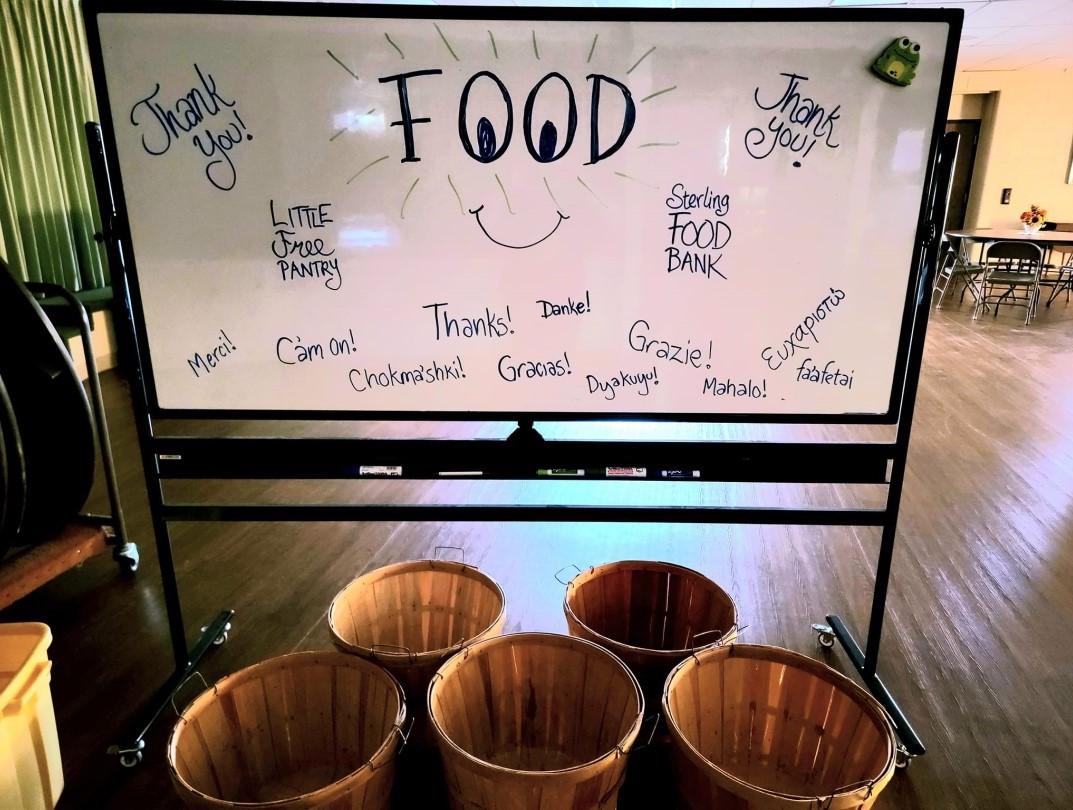 Thank
You!
FOOD
Thank
you!
LITTLE
Free
PANTRY
Sterling
FOOD
BANK
Merci!
Cảm On!
Chokma'shki!
Thanks!
Danke!
Gracias!
Dyakuyu!
Grazie!
Mahalo!
Ευχαριστώ
fa'afetai